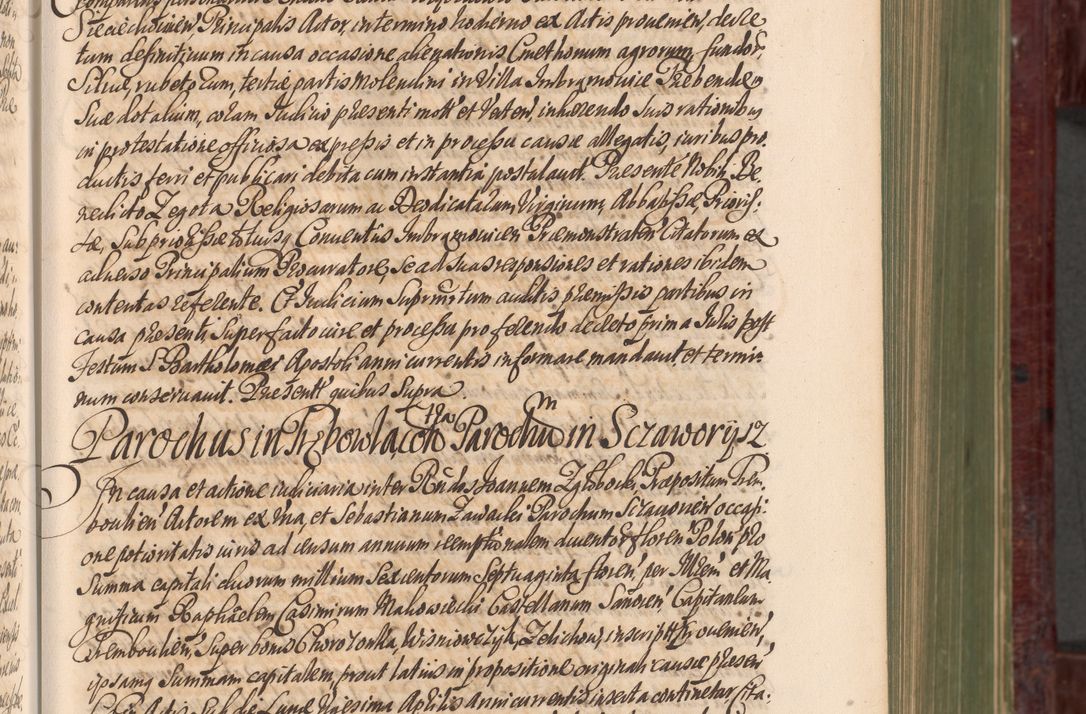 Sieciechovien, Principalis Actor, in termino hodierno ex Actis proveniens, decre
tum definitivum in causa occasione alienationis Cmethonum agrorum, fundor,
Silvæ, rubetorum, tertiæ partis molendini in Villa Imbramowice Præbendæ
Suæ dotalium, coram Iudicio præsenti mott et Verten, inhærendo Suis rationibus
in protestatione officiosa expressis et in processu causæ allegatis, iuribus pro
ductis ferri et publicari debita cum instantia postulavit. Præsente Nobili Be
nedicto Zegota Religiosarum ac Deo dicatarum, Virginum, Abbatissæ, Prioris
sæ, Subpriorissæ totiusq Conventus Imbramovicen Præmonstraten Citatorum ex
adverso Principalium Procuratore, se ad suas responsiones et rationes ibidem
contentas referente. Et Iudicium Suprmtum auditis præmissis partibus in
causa præsenti Super facto iure et processu pro ferendo decreto prima Iuris post
Festum S Bartholomæi Apostoli anni currentis informare mandavit, et termi
num conservavit. Præsentt quibus Supra
Parochus in Trzbowla ctra Parochum in Sczaworÿ 12
In causa et actione iudiciaria inter Rndos Ioannem Præpositum Trem
bovlien Actorem ex Una, et Sebastianum Zawacki Parochum Sczavorien occasi
one potioritatis iuris ad censum annuum reemptionalem ducentor floren Polon pro
Summa capitali duorum millium Sexcentorum Septuaginta floren, per Illrem et Ma
gnificum Raphaelem Casimirum Makowiecki Castellanum Capitaneum
Trembovlien, Super bonis Chorostkow, Wisniowczyk, Zelichow, inscript provenien,
ipsamq Summam capitalem, prout latius in propositione originali causæ præsen
Actis Sub die Lunæ Vigesima Aprilis Anni currentis inserta continetur